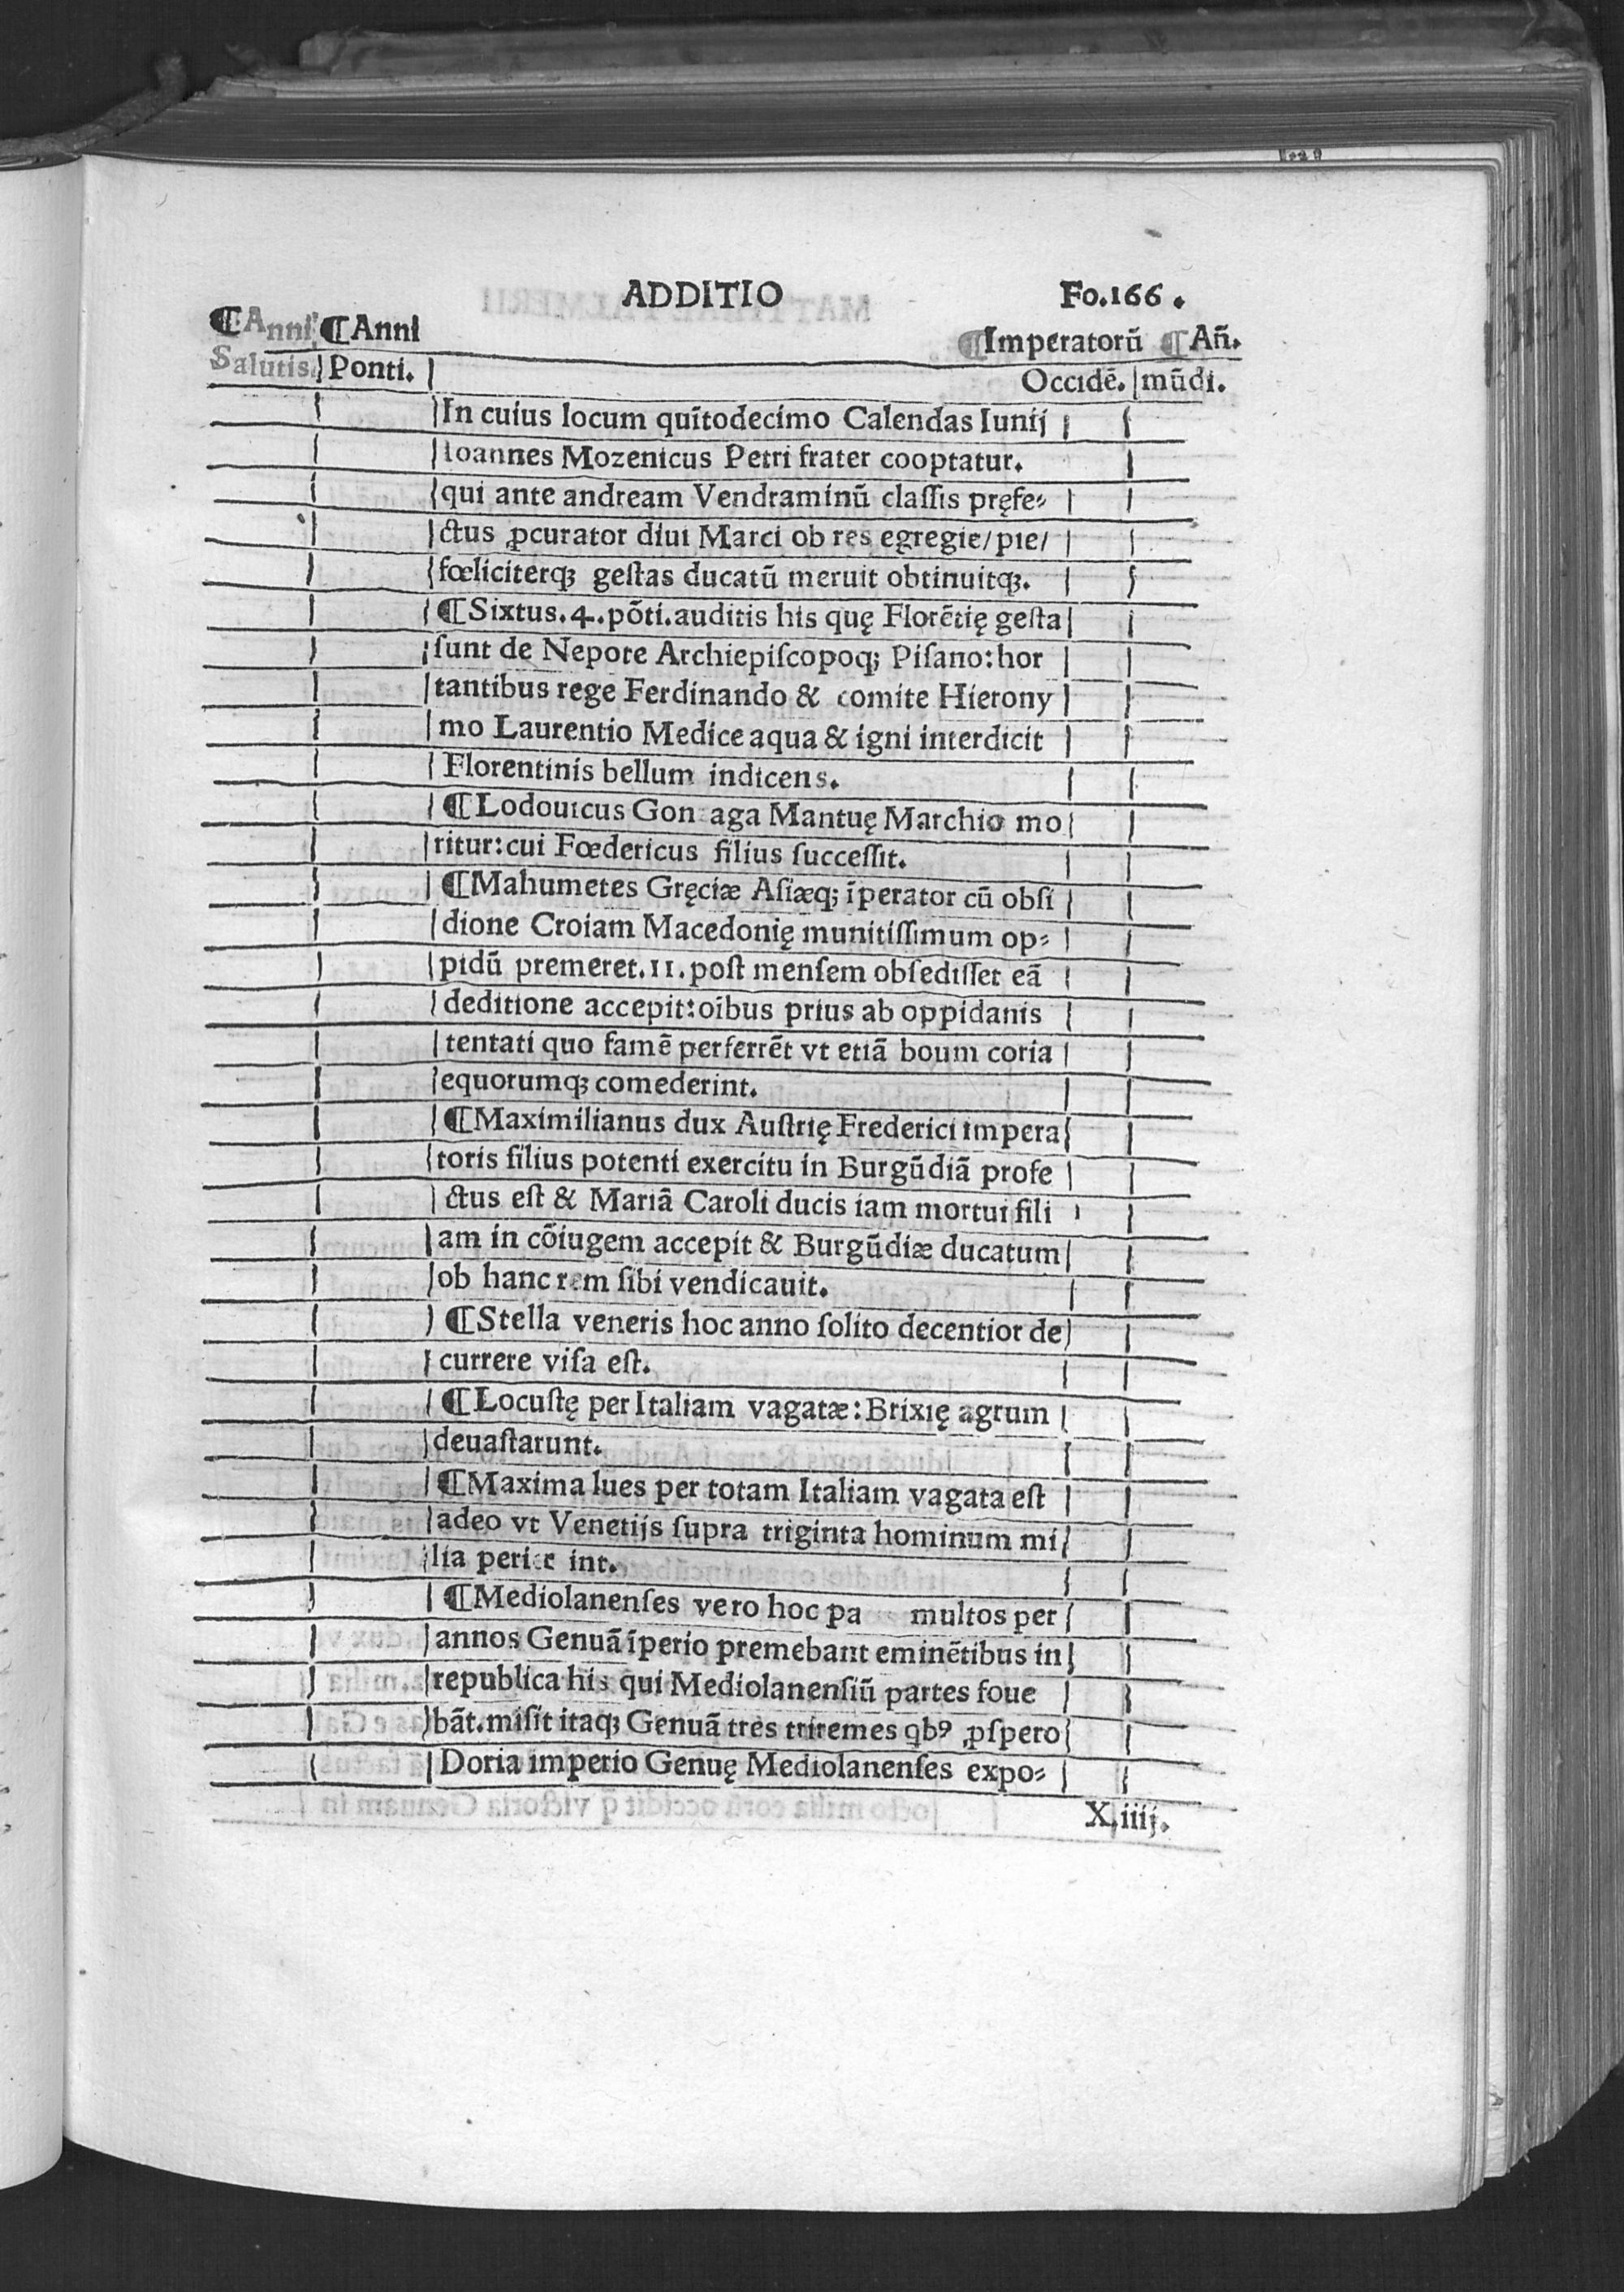 ADDITIO Fo.166.
¶Anni ¶Anni ¶Imperatorũ ¶Añ.
Salutis. Ponti. Occidẽ. mũdi.
In cuius locum quĩtodecimo Calendas Iunij
Ioannes Mozenicus Petri frater cooptatur.
qui ante andream Vendraminũ claſſis pręfe⸗
ctus ꝓcurator diui Marci ob res egregie/pie/
fœliciterq; geſtas ducatũ meruit obtinuitq;.
¶Sixtus.4.põti.auditis his quę Florẽtię geſta
ſunt de Nepote Archiepiſcopoq; Piſano:hor
tantibus rege Ferdinando & comite Hierony
mo Laurentio Medice aqua & igni interdicit
Florentinis bellum indicens.
¶Lodouicus Gon aga Mantuę Marchio mo
ritur:cui Fœdericus filius ſucceſſit.
¶Mahumetes Gręciæ Aſiæq; ĩperator cũ obſi
dione Croiam Macedonię munitiſſimum op⸗
pidũ premeret.11.poſt menſem obſediſſet eã
deditione accepit:oĩbus prius ab oppidanis
tentati quo famẽ perferrẽt vt etiã boum coria
equorumq; comederint.
¶Maximilianus dux Auſtrię Frederici impera
toris filius potenti exercitu in Burgũdiã profe
ctus eſt & Mariã Caroli ducis iam mortui fili
am in cõiugem accepit & Burgũdiæ ducatum
ob hanc rem ſibi vendicauit.
¶Stella veneris hoc anno ſolito decentior de
currere viſa eſt.
¶Locuſtę per Italiam vagatæ:Brixię agrum
deuaſtarunt.
¶Maxima lues per totam Italiam vagata eſt
adeo vt Venetijs ſupra triginta hominum mi
lia perier int.
¶Mediolanenſes vero hoc pa multos per
annos Genuã ĩperio premebant eminẽtibus in
republica his qui Mediolanenſiũ partes foue
bãt.miſit itaq; Genuã tres triremes qbꝰ ꝓſpero
Doria imperio Genuę Mediolanenſes expo⸗
X.iiij.